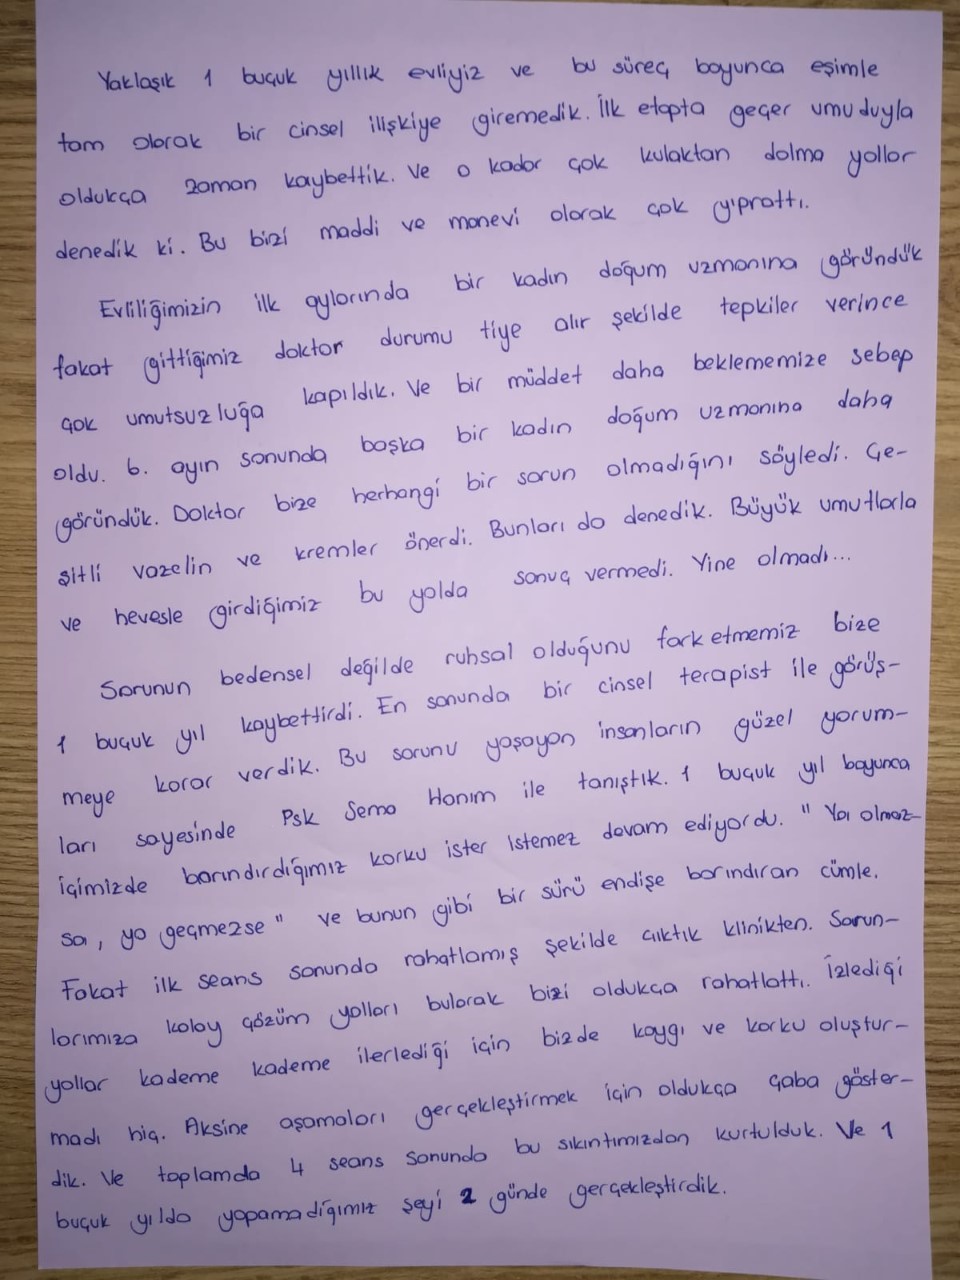 Yaklaşık 1 buçuk yıllık evliyiz ve bu süreç boyunca eşimle
tam olarak bir cinsel ilişkiye giremedik. İlk etapta geçer umuduyla
oldukça zaman kaybettik. Ve o kadar çok kulaktan dolma yollar
denedik ki. Bu bizi maddi ve manevi olarak çok yıprattı.
Evliliğimizin ilk aylarında bir kadın doğum uzmanına göründük
fakat gittiğimiz doktor durumu tiye alır şekilde tepkiler verince
çok umutsuzluğa kapıldık. Ve bir müddet daha beklememize sebep
oldu. 6. ayın sonunda başka bir kadın doğum uzmanına daha
göründük. Doktor bize herhangi bir sorun olmadığını söyledi. Çe-
şitli vazelin ve kremler önerdi. Bunları da denedik. Büyük umutlarla
ve hevesle girdiğimiz bu yolda sonuç vermedi. Yine olmadı...
Sorunun bedensel değilde ruhsal olduğunu fark etmemiz bize
1 buçuk yıl kaybettirdi. En sonunda bir cinsel terapist ile görüş-
meye karar verdik. Bu sorunu yaşayan insanların güzel yorum-
ları sayesinde Psk Sema Hanım ile tanıştık. 1 buçuk yıl boyunca
içimizde barındırdığımız korku ister istemez devam ediyordu. " Ya olmaz-
sa, ya geçmezse " ve bunun gibi bir sürü endişe barındıran cümle.
Fakat ilk seans sonunda rahatlamış şekilde çıktık klinikten. Sorun-
larımıza kolay çözüm yolları bularak bizi oldukça rahatlattı. İzlediği
yollar kademe kademe ilerlediği için bizde kaygı ve korku oluştur-
madı hiç. Aksine aşamaları gerçekleştirmek için oldukça çaba göster-
dik. Ve toplamda 4 seans sonunda bu sıkıntımızdan kurtulduk. Ve 1
buçuk yılda yapamadığımız şeyi 2 günde gerçekleştirdik.